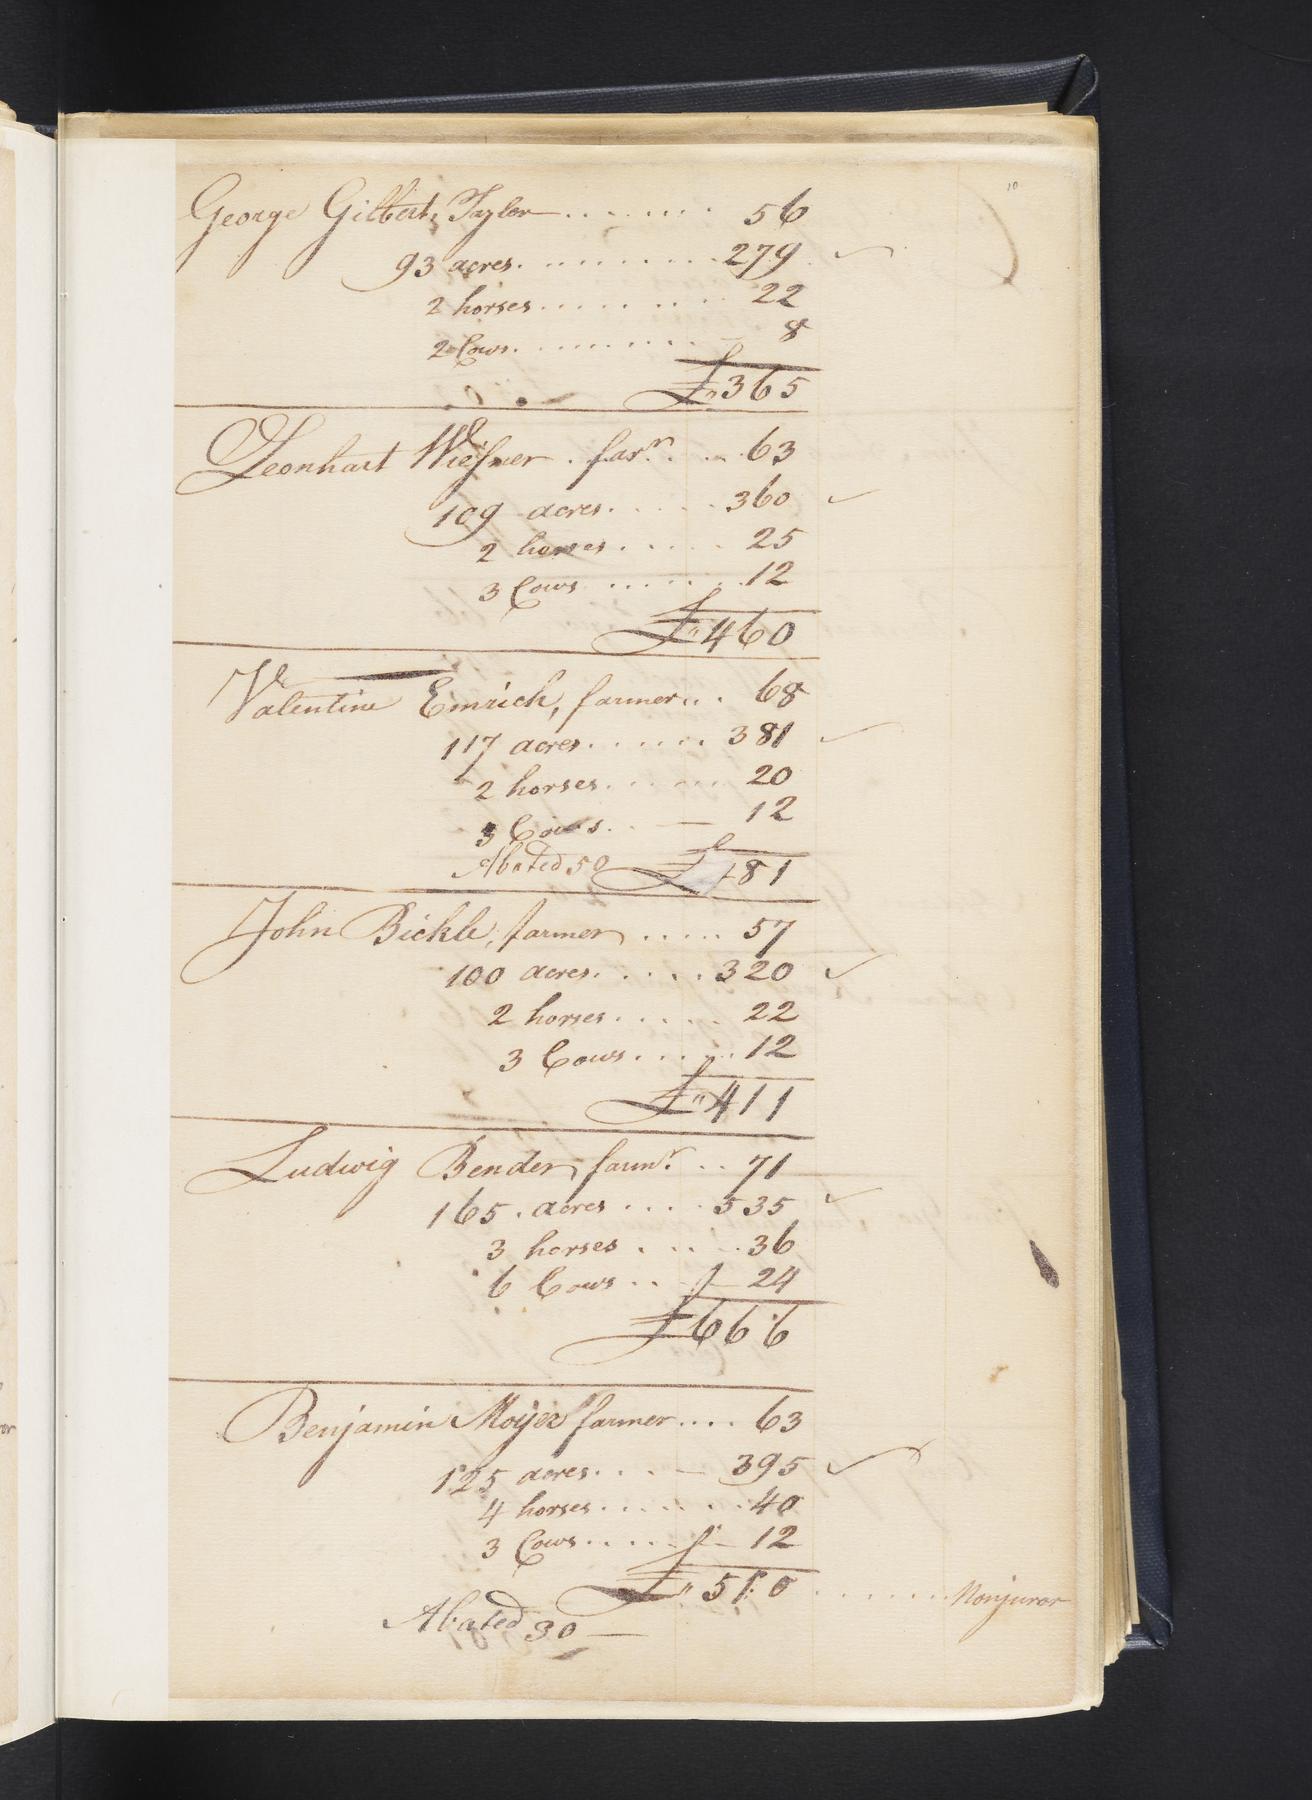 10
George Gilbert, Taylor ........ 56
93 acres. .......... 279
2 horses ......... 22
2 Cows. ......... 8
£ 365
Leonhart Wiesner . farmr. .. 63
109 acres. .... 360
2 horses ..... 25
3 Cows ....... 12
£ 460
Valentine Emrich, farmer ... 68
117 acres ....... 381
2 horses ....... 20
3 Cows. . — 12
Abated 50 £ 481
John Bickle, farmer ..... 57
100 acres. .... 320
2 horses ..... 22
3 Cows ..... 12
£ 411
Ludwig Bender, farmr .. 71
165 . acres .... 535
3 horses .... 36
6 Cows .. — 24
£ 666
Benjamin Moyer farmer .... 63
125 acres. ... — 395
4 horses ....... 40
3 Cows .... — 12
£ 510 ........ Nonjuror
Abated 30 —